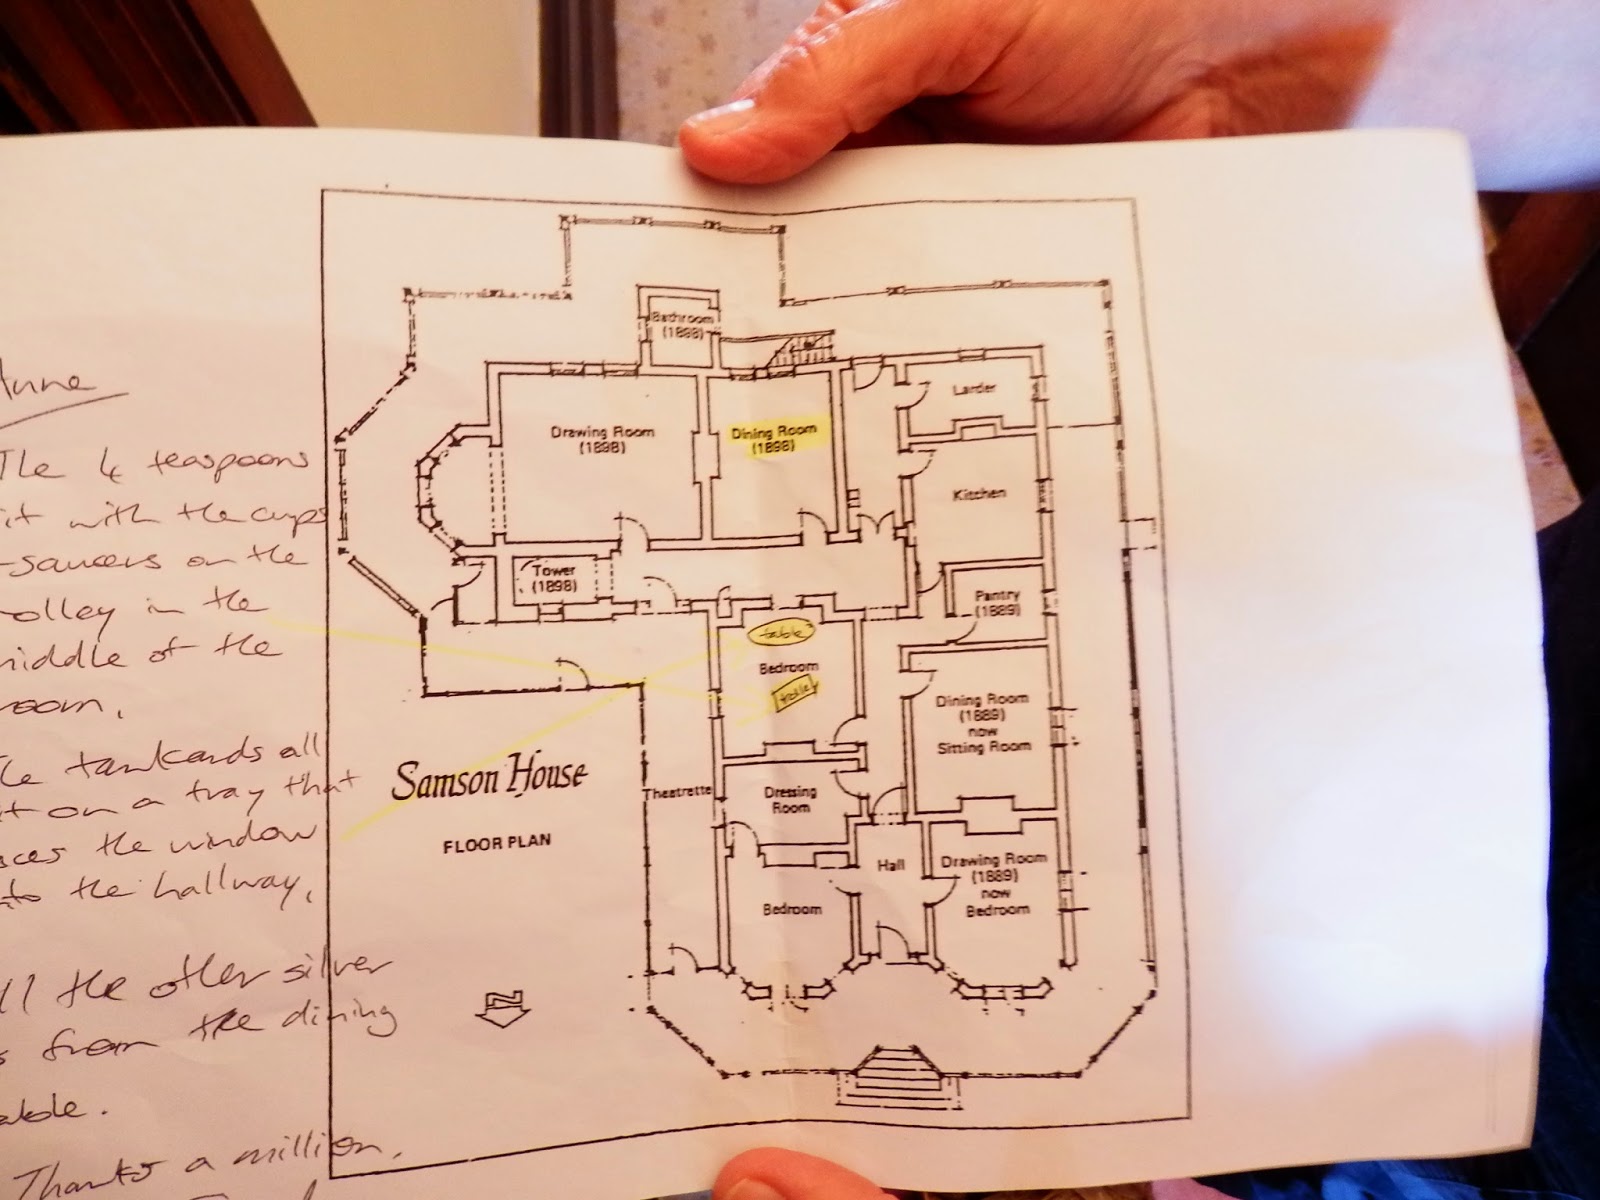 Anne
The 4 teaspoons
sit with the cups
saucers on the
trolley in the
middle of the
room.
tankards all
on a tray that
the window
the hallway.
the other silver
from the dining
Thanks a million.
Bathroom
(1898)
Larder
Drawing Room
(1898)
Dining Room
(1898)
Kitchen
Tower
(1898)
Pantry
(1889)
table
Bedroom
trolley
Dining Room
(1889)
now
Sitting Room
Samson House
FLOOR PLAN
Theatrette
Dressing
Room
Hall
Drawing Room
(1889)
now
Bedroom
Bedroom
N